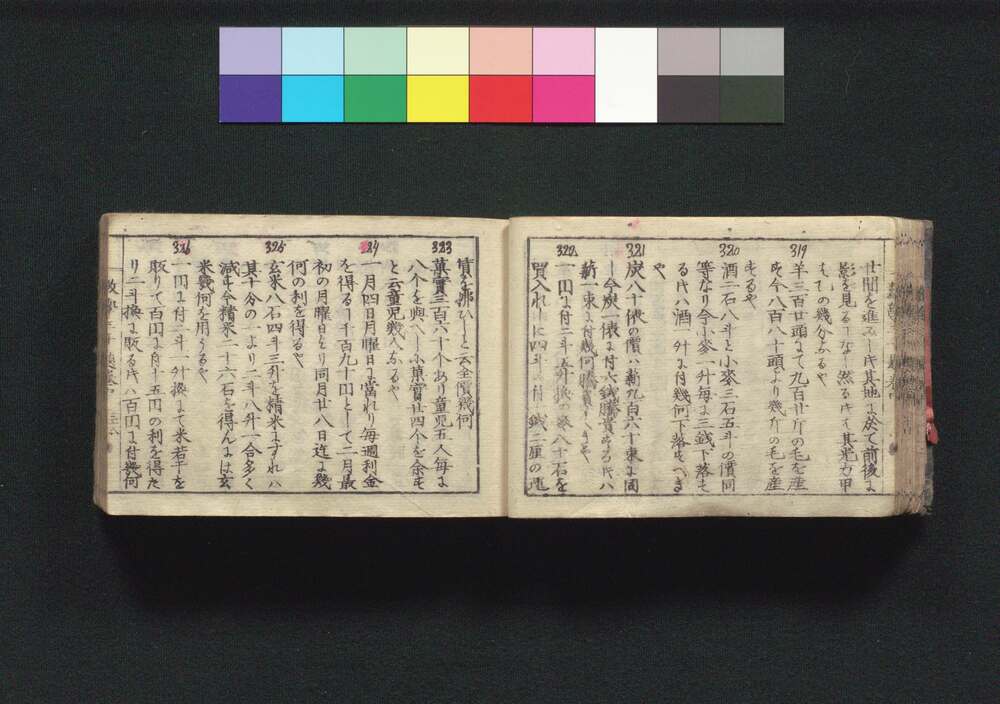 廿間を進みし時其地に於て前後に
影を見ることなし然る時は其光力甲
は乙の幾分なるや
319
羊三百廿頭にて九百廿斤の毛を産
せば今八百八十頭より幾斤の毛を産
するや
320
酒二石八斗と小麥三石五斗の價同
等なり今小麥一升毎に三銭下落せ
る時は酒一升に付幾何下落すべき
や
321
炭八十俵の價は薪九百六十束に同
し今炭一俵に付六銭騰貴する時は
薪一束に付幾何騰貴すべきや
322
一円に付二斗五升換の麥八十石を
買入れしに四斗に付銭二厘の
賃を拂ひしと云全價幾何
323
菓實三百六十个あり童児五人毎に
八个を與へしに菓實廿四个を余せ
と云童児幾人なるや
324
一月四日月曜日に當れり毎週利金
を得ること千百九十円として二月最
初の月曜日より同月廿八日迄に幾
何の利を得るや
325
玄米八石四斗三升を精米にすれば
其十分の一より二斗八升一合多く
減せ今精米二十六石を得んには玄
米幾何を用うるや
326
一円に付二斗一升換にて米若干を
販りて百円に付十五円の利を得た
り二斗換に販る時は百円に付幾何